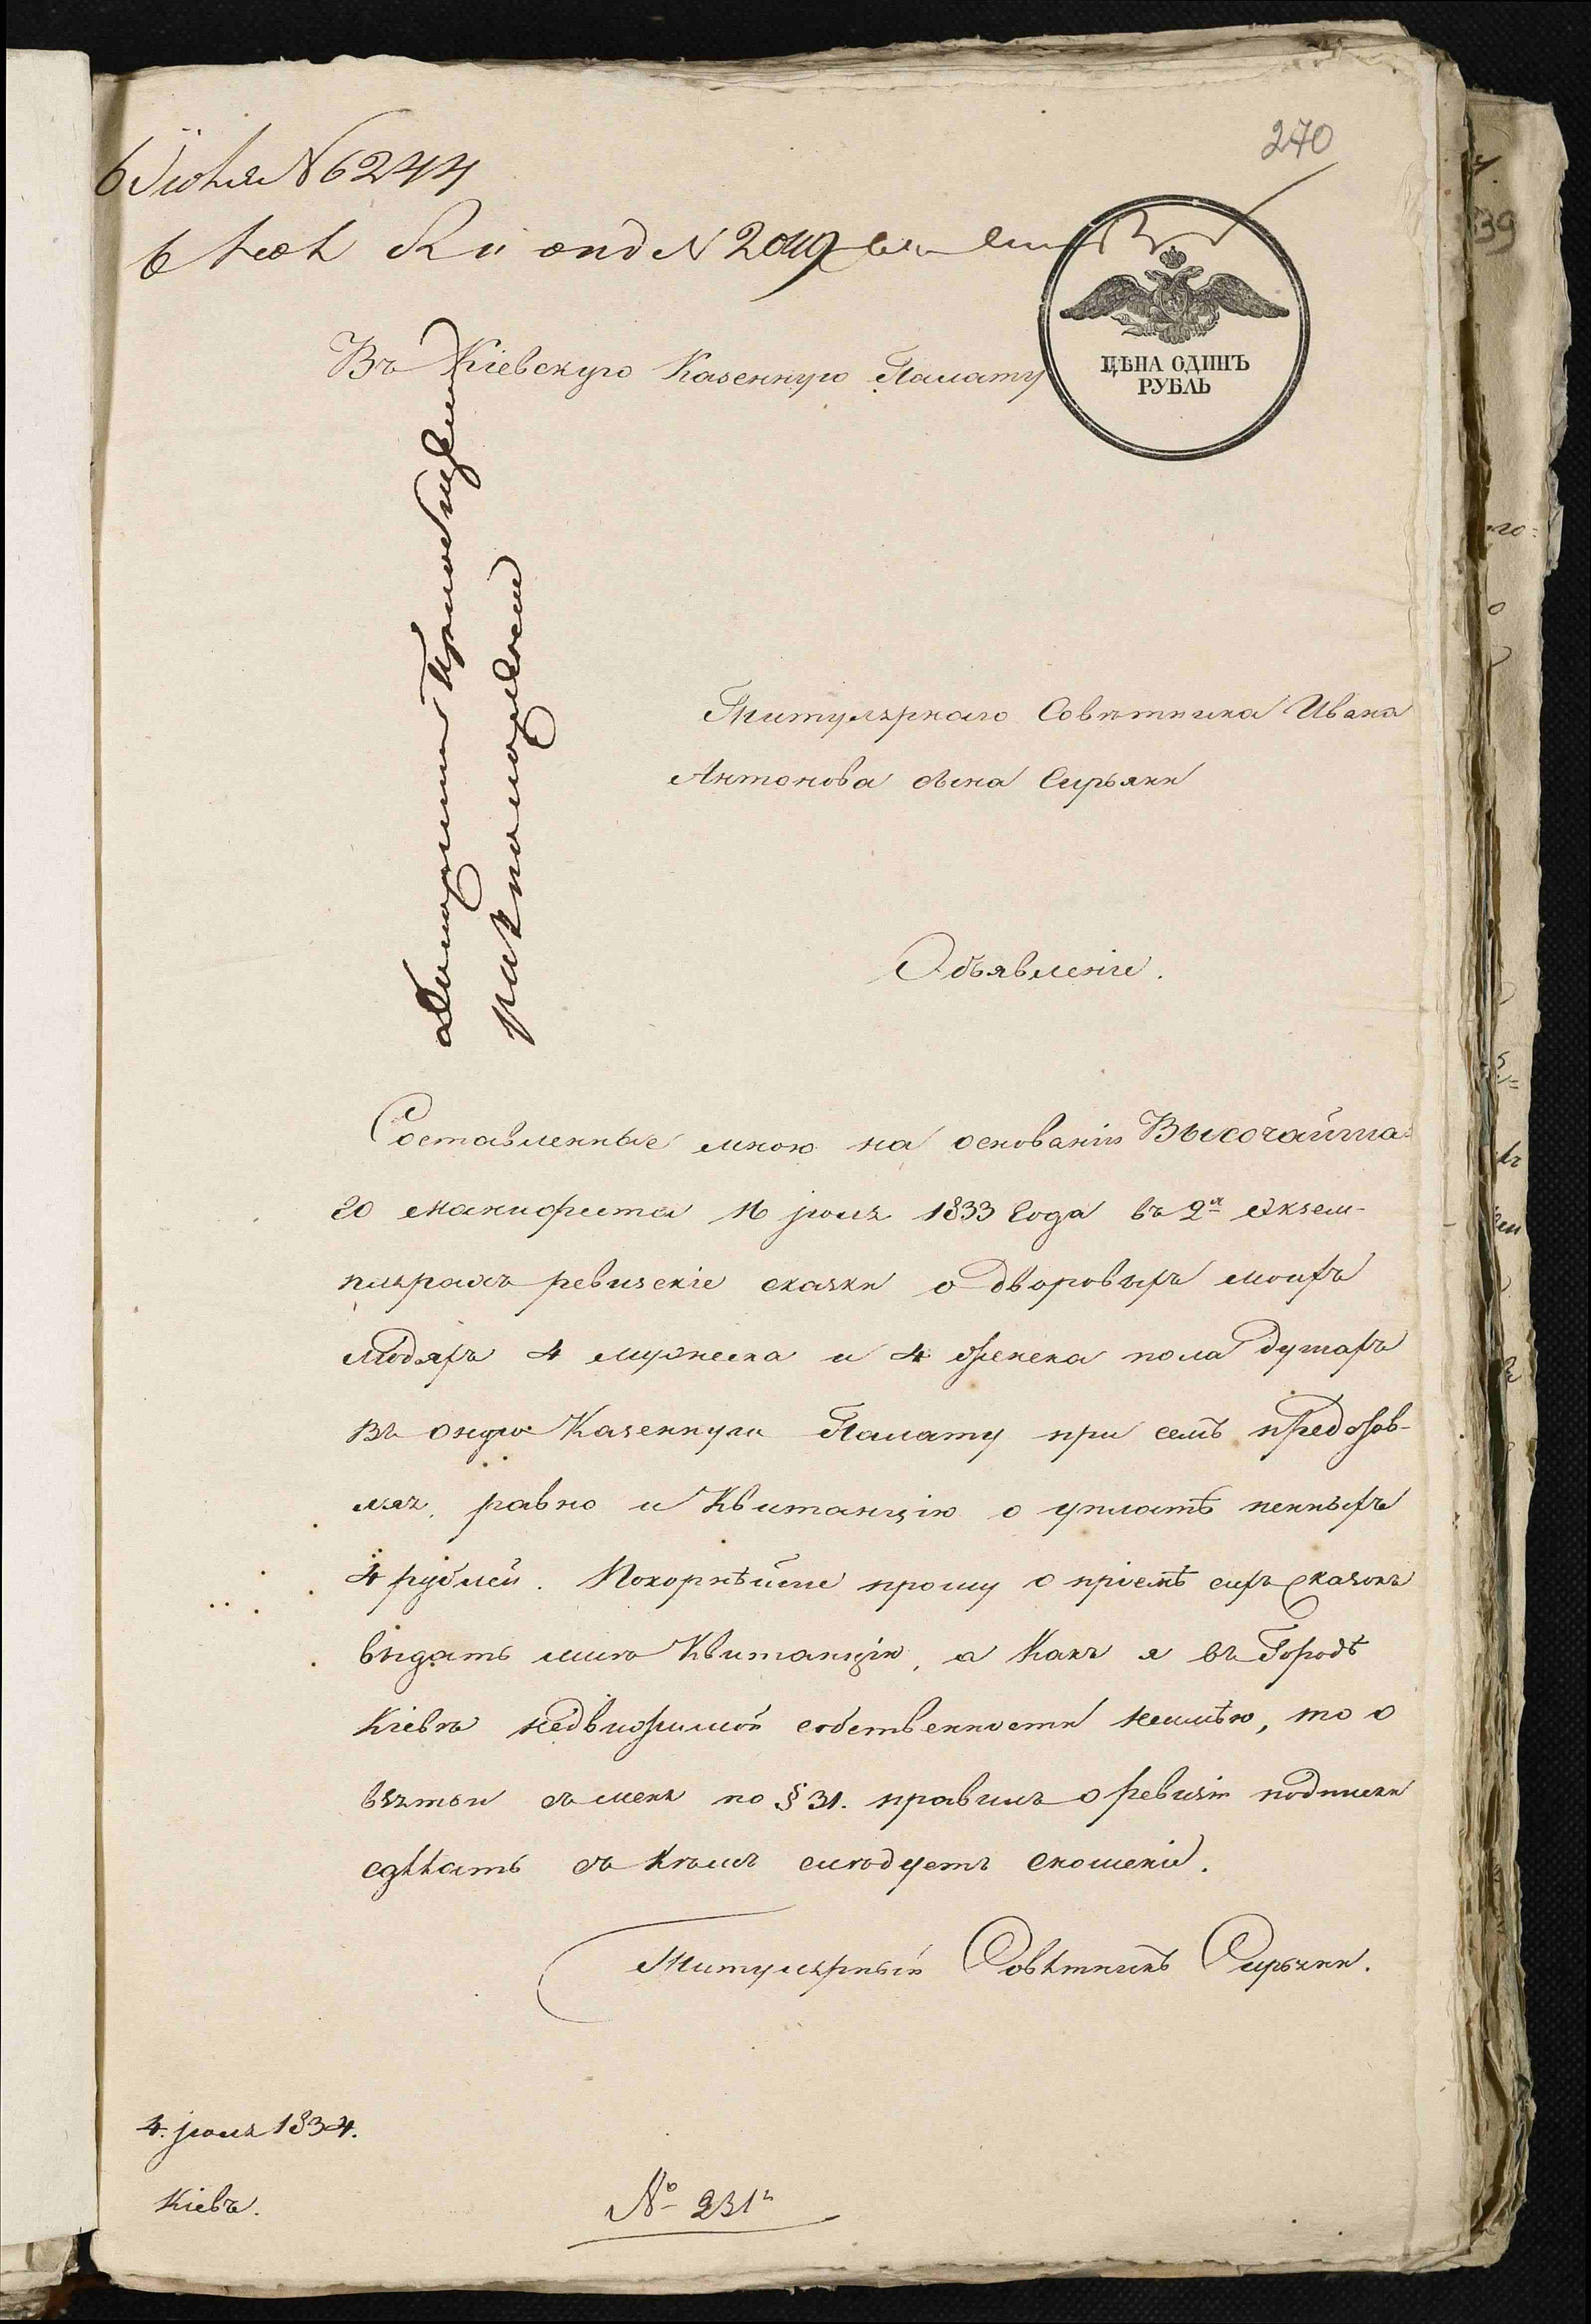 270
6 Іюля № 6244
6 № 2049
ЦѢНА ОДИНЪ
РУБЛЬ
Въ Кіевскую Казенную Палату
Титулярнаго Совѣтника Ивана
Антонова сына Сирьяки
Объявленіе.
Составленные мною на основаніи Высочайша-
го манифеста 16 іюня 1833 года въ 2х экзем-
плярахъ ревизскіе сказки о дворовыхъ моихъ
людяхъ 4 мужеска и 4 женска пола душахъ
въ оную Казенную Палату при семъ предостав-
ляя, равно и Квитанцію о уплатѣ пенныхъ
4 рублей. Покорнѣйше прошу о пріемѣ сихъ сказокъ
выдать мнѣ Квитанцію, а Какъ я въ Городѣ
Кіевѣ недвижимой собственности неимѣю, то о
взятьи съ меня по § 31. правилъ о ревизіи подписки
сдѣлать съ кѣмъ слѣдуетъ сношеніе.
Титулярный Совѣтникъ Сирьяки.
4. іюля 1834.
Кіевъ.
№ 231